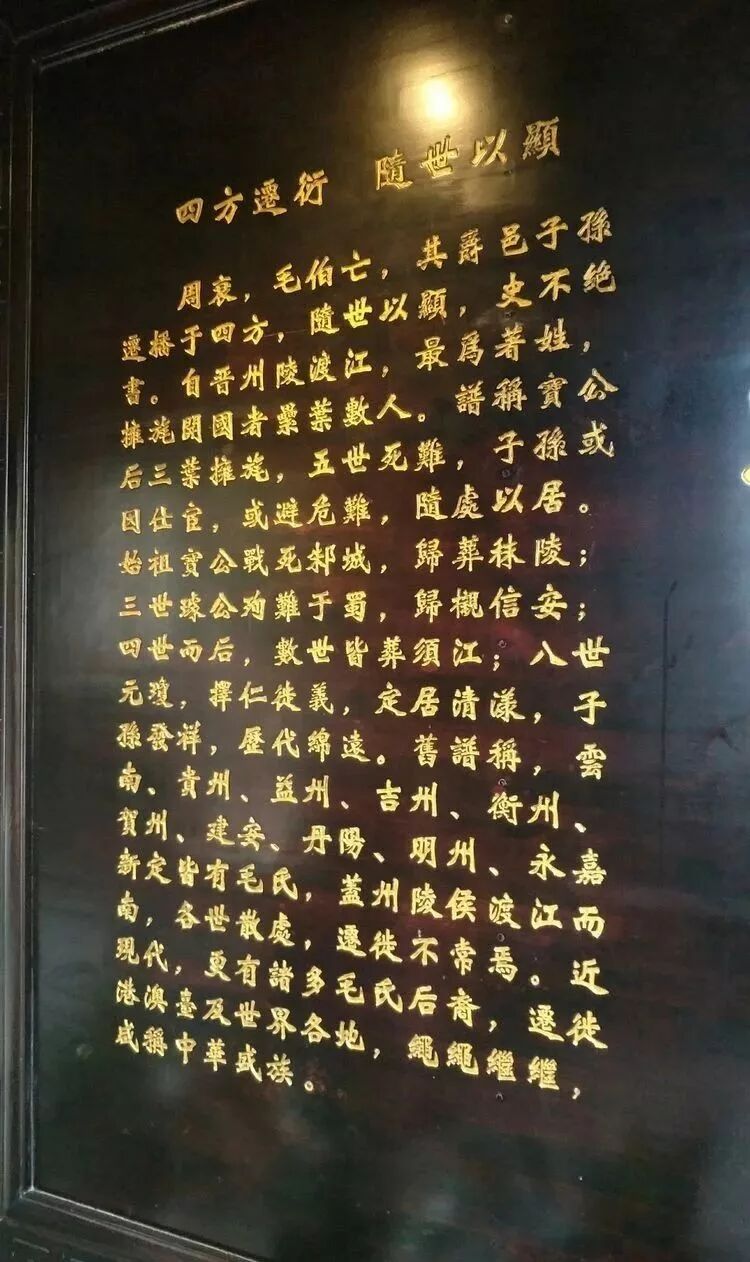 四方遷衍 隨世以顯
周衰，毛伯亡，其爵邑子孫
遷播于四方，隨世以顯，史不绝
書。自晋州陵渡江，最爲著姓，
擁旄開國者纍葉數人。譜稱寶公
后三葉擁旄，五世死難，子孫或
因仕宦，或避危難，隨處以居。
始祖寶公戰死邾城，歸葬秣陵；
三世璩公殉難于蜀，歸櫬信安；
四世而后，數世皆葬須江；八世
元瓊，擇仁徙義，定居清漾，子
孫發祥，歷代綿遠。舊譜稱，雲
南、貴州、益州、吉州、衡州、
賀州、建安、丹陽、明州、永嘉
新定皆有毛氏，蓋州陵侯渡江而
南，各世散處，遷徙不常焉。近
現代，更有諸多毛氏后裔，遷徙
港澳臺及世界各地，繩繩繼繼，
咸稱中華盛族。